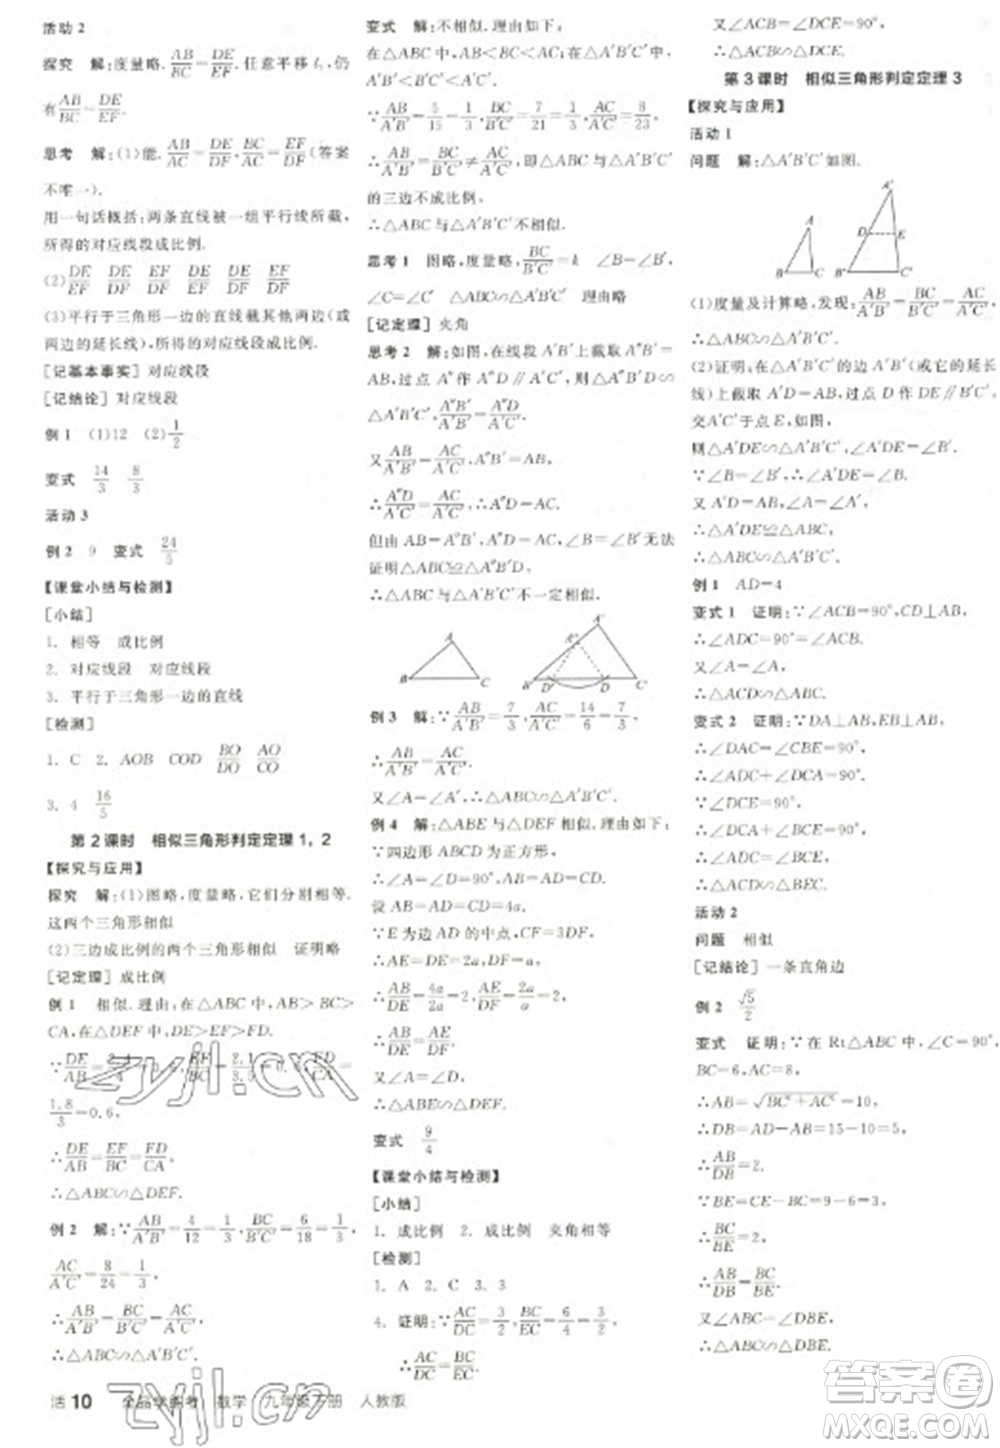 活动 2
探究 解:度量略. AB/BC=DE/EF. 任意平移 l₃,仍
有 AB/BC=DE/EF.
思考 解:(1)能. AB/AC=DE/DF, BC/AC=EF/DF(答案
不唯一).
用一句话概括:两条直线被一组平行线所截,
所得的对应线段成比例.
(2) DE/EF DE/DF EF/DE EF/DF
(3)平行于三角形一边的直线截其他两边(或
两边的延长线),所得的对应线段成比例.
[记基本事实] 对应线段
[记结论] 对应线段
例 1 (1)12 (2)1/2
变式 14/3 8/3
活动 3
例 2 9 变式 24/5
【课堂小结与检测】
[小结]
1. 相等 成比例
2. 对应线段 对应线段
3. 平行于三角形一边的直线
[检测]
1. C 2. AOB COD BO/DO AO/CO
3. 4 16/5
第 2 课时 相似三角形判定定理 1, 2
【探究与应用】
探究 解:(1)图略,度量略,它们分别相等.
这两个三角形相似
(2)三边成比例的两个三角形相似 证明略
[记定理] 成比例
例 1 相似.理由:在△ABC 中,AB>BC>
CA,在△DEF 中,DE>EF>FD.
1.8/3=0.6,
∴DE/AB=EF/BC=FD/CA.
∴△ABC∽△DEF.
例 2 解:∵AB/A′B′=4/12=1/3, BC/B′C′=6/18=1/3,
AC/A′C′=8/24=1/3,
∴AB/A′B′=BC/B′C′=AC/A′C′.
∴△ABC∽△A′B′C′.
变式 解:不相似.理由如下:
在△ABC 中,AB<BC<AC,
在△A′B′C′中,A′B′<B′C′<A′C′.
∵AB/A′B′=5/15=1/3, BC/B′C′=7/21=1/3, AC/A′C′=8/23,
∴AB/A′B′=BC/B′C′≠AC/A′C′,即△ABC 与△A′B′C′
的三边不成比例.
∴△ABC 与△A′B′C′不相似.
思考 1 图略,度量略, BC/B′C′=k ∠B=∠B′,
∠C=∠C′ △ABC∽△A′B′C′ 理由略
[记定理] 夹角
思考 2 解:如图,在线段 A′B′上截取 A″B′=
AB,过点 A″作 A″D∥A′C′,则△A″B′D∽
△A′B′C′, A″B′/A′B′=A″D/A′C′.
又∵AB/A′B′=AC/A′C′,A″B′=AB,
∴A″D/A′C′=AC/A′C′.∴A″D=AC.
但由 AB=A″B′,AC=A″D,∠B=∠B′无法
证明△ABC≌△A″B′D,
∴△ABC 与△A′B′C′不一定相似.
A B C A″ A′ B′ D′ D C′
例 3 解:∵AB/A′B′=7/3, AC/A′C′=14/6=7/3,
∴AB/A′B′=AC/A′C′.
又∵∠A=∠A′,∴△ABC∽△A′B′C′.
例 4 解:△ABE 与△DEF 相似.理由如下:
∵四边形 ABCD 为正方形,
∴∠A=∠D=90°,AB=AD=CD.
设 AB=AD=CD=4a.
∵E 为边 AD 的中点,CF=3DF,
∴AE=DE=2a,DF=a.
∴AB/DE=4a/2a=2, AE/DF=2a/a=2,
∴AB/DE=AE/DF.
又∵∠A=∠D,
∴△ABE∽△DEF.
变式 9/4
【课堂小结与检测】
[小结]
1. 成比例 2. 成比例 夹角相等
[检测]
1. A 2. C 3. 3
4. 证明:∵AC/DC=3/2, BC/EC=6/4=3/2,
∴AC/DC=BC/EC.
又∵∠ACB=∠DCE=90°,
∴△ACB∽△DCE.
第 3 课时 相似三角形判定定理 3
【探究与应用】
活动 1
问题 解:△A′B′C′如图.
A B C A′ D E B′ C′
(1)度量及计算略,发现: AB/A′B′=BC/B′C′=AC/A′C′,
∴△ABC∽△A′B′C′.
(2)证明:在△A′B′C′的边 A′B′(或它的延长
线)上截取 A′D=AB,过点 D 作 DE∥B′C′,
交 A′C′于点 E,如图,
则△A′DE∽△A′B′C′,∠A′DE=∠B′.
∵∠B=∠B′,∴∠A′DE=∠B.
又∵A′D=AB,∠A=∠A′,
∴△A′DE≌△ABC,
∴△ABC∽△A′B′C′.
例 1 AD=4
变式 1 证明:∵∠ACB=90°,CD⊥AB,
∴∠ADC=90°=∠ACB.
又∵∠A=∠A,
∴△ADC∽△ACB.
变式 2 证明:∵DA⊥AB,EB⊥AB,
∴∠DAC=∠CBE=90°,
∴∠ADC+∠DCA=90°.
∵∠DCE=90°,
∴∠DCA+∠BCE=90°,
∴∠ADC=∠BCE,
∴△DAC∽△CBE.
活动 2
问题 相似
[记结论] 一条直角边
例 2 √5/2
变式 证明:∵在 Rt△ABC 中,∠C=90°,
BC=6,AC=8,
∴AB=√(BC²+AC²)=10,
∴DB=AD-AB=15-10=5,
∴AB/DB=2.
∵BE=CE-BC=9-6=3,
∴BC/BE=2,
∴AB/DB=BC/BE.
又∵∠ABC=∠DBE,
∴△ABC∽△DBE.
zyjl.cn
zyjl.cn
活 10 全品学练考 数学 九年级下册 人教版
答案圈
MXQE.COM